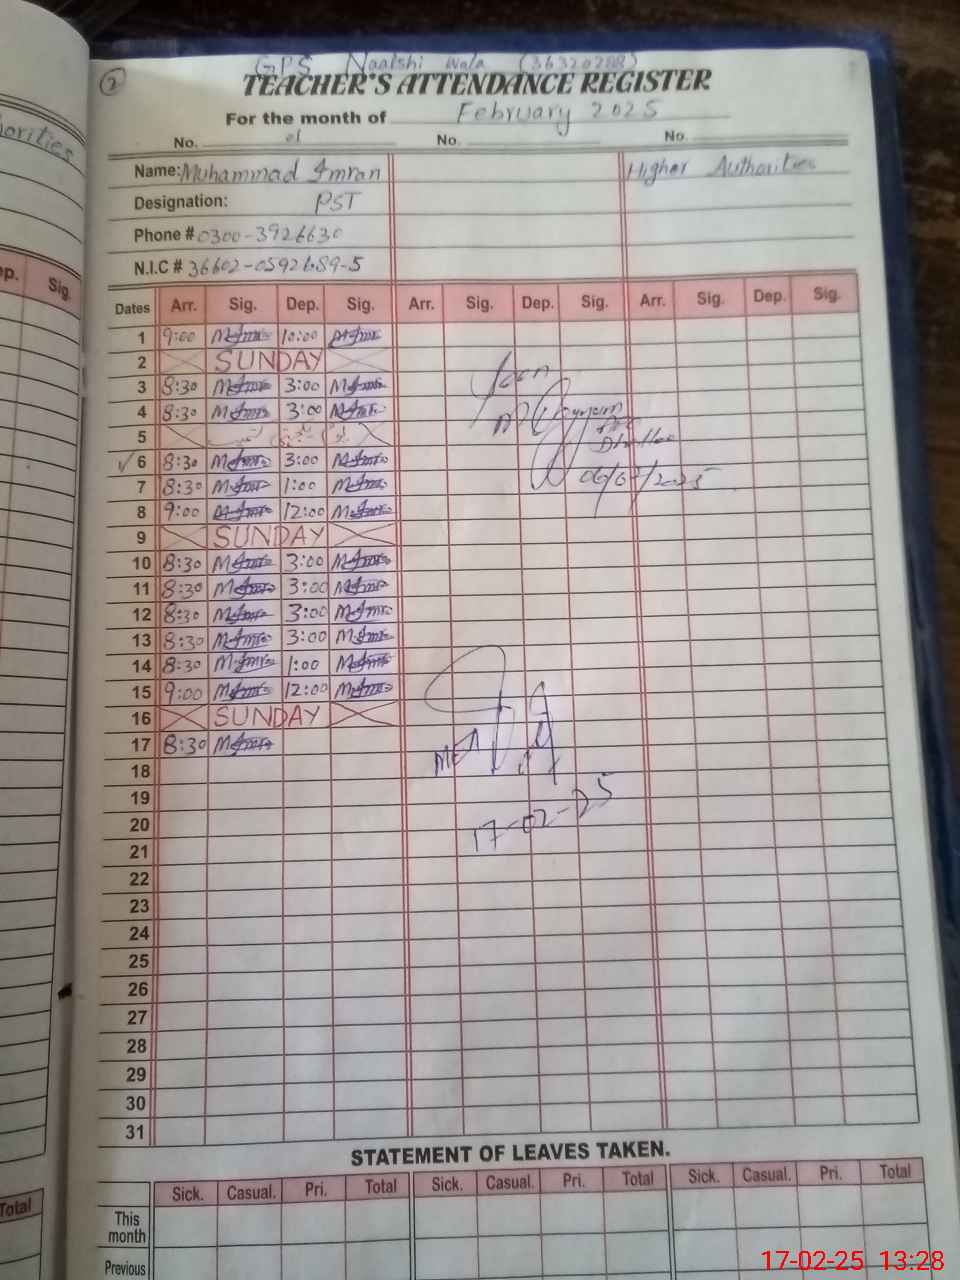 GPS Naalshi wala (36320288)
2
TEACHER'S ATTENDANCE REGISTER
For the month of February 2025
No. 01 No. No.
Name: Muhammad Imran Higher Authorities
Designation: PST
Phone # 0300-3926630
N.I.C # 36602-0592689-5
Dates Arr. Sig. Dep. Sig. Arr. Sig. Dep. Sig. Arr. Sig. Dep. Sig.
1 9:00 M.Imran 10:00 M.Imran
2 SUNDAY
3 8:30 M.Imran 3:00 M.Imran
4 8:30 M.Imran 3:00 M.Imran
5
6 8:30 M.Imran 3:00 M.Imran
7 8:30 M.Imran 1:00 M.Imran
8 9:00 M.Imran 12:00 M.Imran
9 SUNDAY
10 8:30 M.Imran 3:00 M.Imran
11 8:30 M.Imran 3:00 M.Imran
12 8:30 M.Imran 3:00 M.Imran
13 8:30 M.Imran 3:00 M.Imran
14 8:30 M.Imran 1:00 M.Imran
15 9:00 M.Imran 12:00 M.Imran
16 SUNDAY
17 8:30 M.Imran
18
19
20
21
22
23
24
25
26
27
28
29
30
31
Seen
06/02/2025
17-02-25
STATEMENT OF LEAVES TAKEN.
Sick. Casual. Pri. Total Sick. Casual. Pri. Total Sick. Casual. Pri. Total
This month
Previous
orities
ep. Sig.
Total
17-02-25 13:28